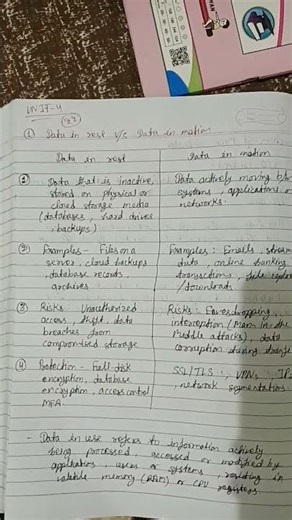 UNIT-4
① Data in rest v/s Data in motion
Data in rest
Data in motion
① Data that is inactive,
stored on physical or
cloud storage media
(databases, hard drives
, backups)
Data actively moving b/w
systems, applications or
networks.
② Examples - Files on a
server, cloud backups
, database records,
archives
Examples: Emails, stream
data, online banking
transactions, file
/downloads
③ Risks Unauthorized
access, theft, data
breaches from
compromised storage
Risks: Eavesdropping,
interception (Man in the
Middle attacks), data
corruption during
④ Protection - Full-disk
encryption, database
encryption, access control
MFA
SSL/TLS, VPNs,
, network segmentation
- Data in use refers to information actively
being processed, accessed or modified by
applications, users or systems, residing in
volatile memory (RAM) or CPU registers.